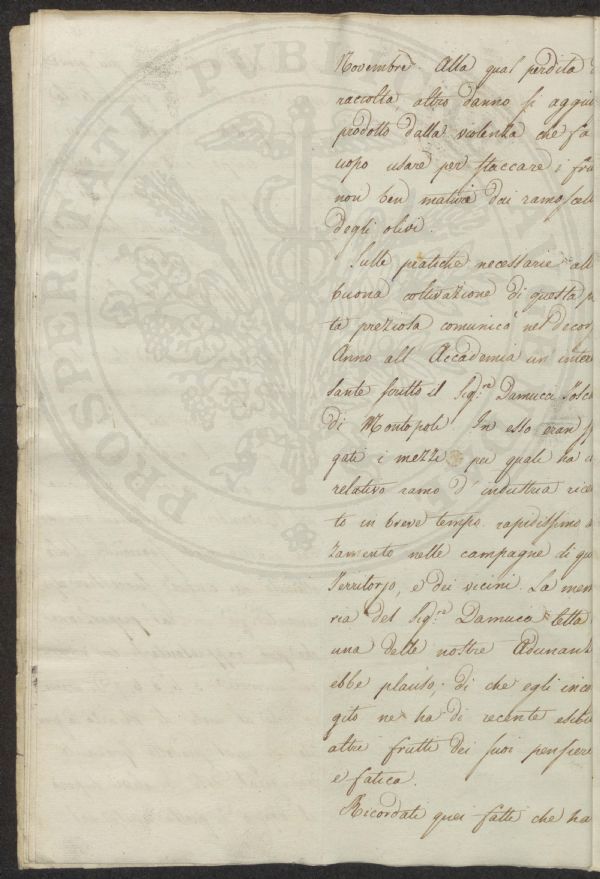 PROSPERITATI PVBLICAE AVGENDAE
Novembre. Alla qual perdita
raccolta altro danno si aggiu
prodotto dalla violenza che fa
uopo usare per staccare i fru
non ben maturi dai ramoscell
degli olivi.
Sulle pratiche necessarie all
buona coltivazione di questa p
ta preziosa comunicò nel decor
Anno all' Accademia un' inter
sante scritto il Sig.re Damucci
di Montopoli. In esso eran
gati i mezzi per quali ha
relativo ramo d' industria rice
to in breve tempo rapidissimo
zamento nelle campagne di qu
Territorjo, e dei vicini. La mem
ria del Sig.re Damucci letta
una delle nostre Adunanz
ebbe plauso; di che egli inco
gito ne ha di recente esibi
altri frutti dei suoi pensier
e fatica.
Ricordati quei fatti che ha